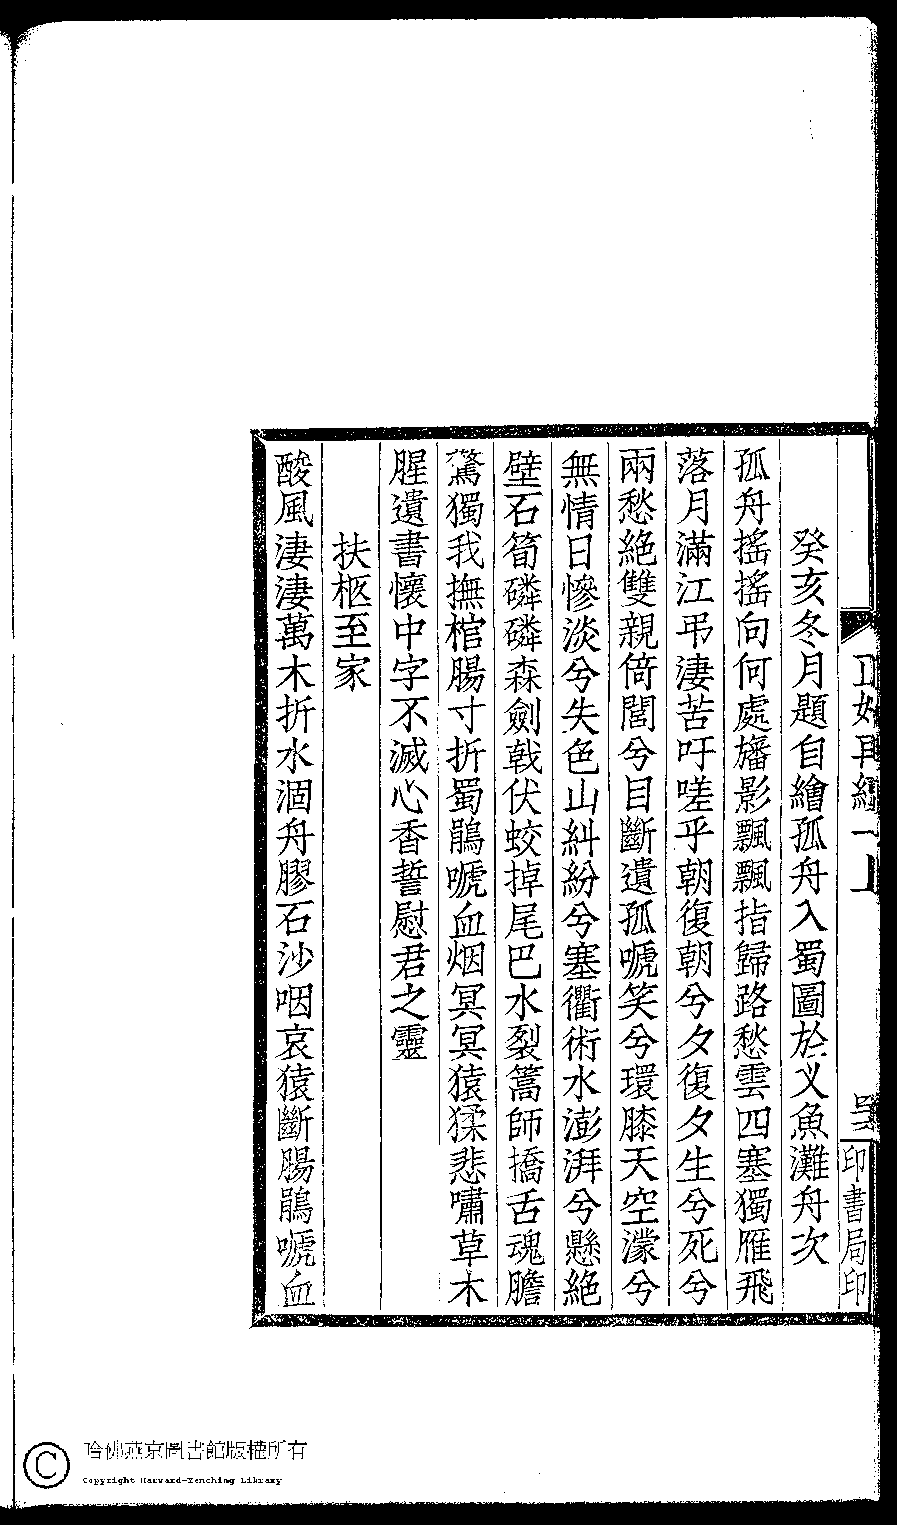 癸亥冬月題自繪孤舟入蜀圖於义魚灘舟次
孤舟搖搖向何處旛影飄飄指歸路愁雲四塞獨雁飛
落月滿江弔淒苦吁嗟乎朝復朝兮夕復夕生兮死兮
兩愁絕雙親倚閭兮目斷遺孤嗁笑兮環膝天空濛兮
無情日慘淡兮失色山糾紛兮塞衢術水澎湃兮懸絕
壁石筍磷磷森劍戟伏蛟掉尾巴水裂篙師撟舌魂膽
驚獨我撫棺腸寸折蜀鵑嗁血烟冥冥猿猱悲嘯草木
腥遺書懷中字不滅心香誓慰君之靈
扶柩至家
酸風淒淒萬木折水涸舟膠石沙咽哀猿斷腸鵑嗁血
印書局印
哈佛燕京圖書館版權所有
Copyright Harvard-Yenching Library